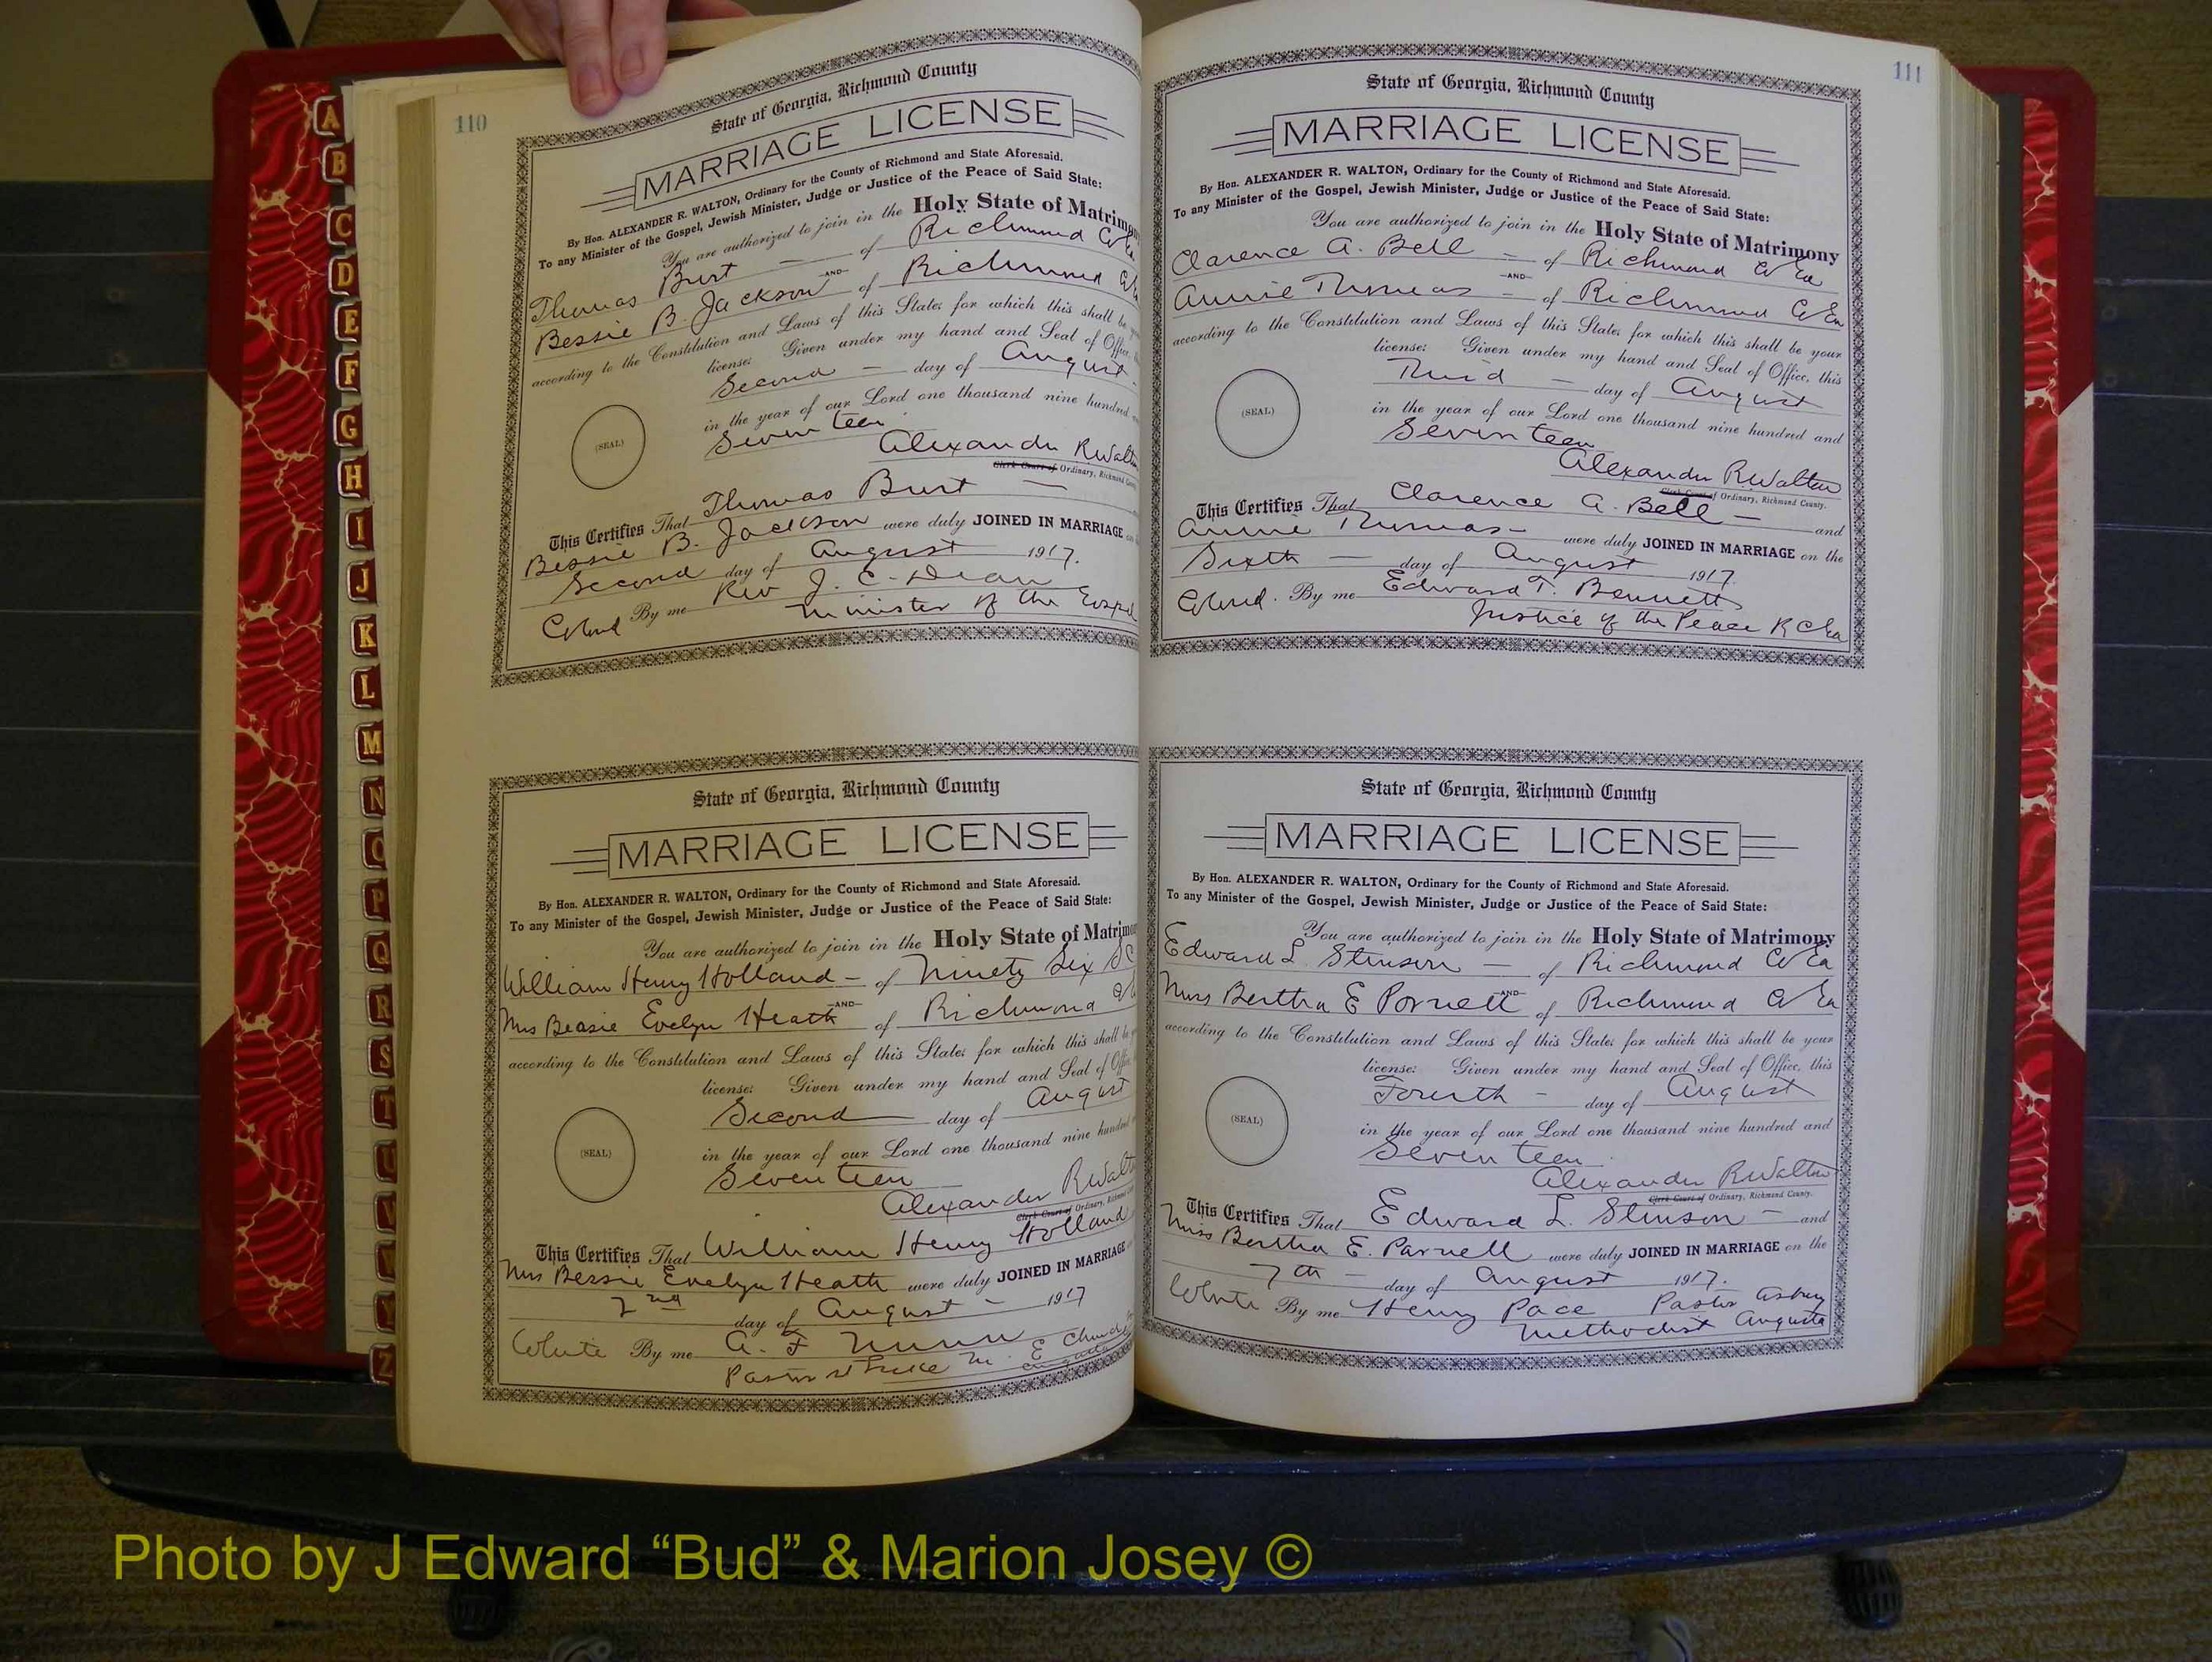 110
State of Georgia, Richmond County
MARRIAGE LICENSE
By Hon. ALEXANDER R. WALTON, Ordinary for the County of Richmond and State Aforesaid.
To any Minister of the Gospel, Jewish Minister, Judge or Justice of the Peace of Said State:
You are authorized to join in the Holy State of Matrimony
Thomas Burt — of Richmond Co Ga
—AND—
Bessie B. Jackson of Richmond Co
according to the Constitution and Laws of this State; for which this shall be
license: Given under my hand and Seal of Office,
Second — day of August
in the year of our Lord one thousand nine hundred
Seventeen
(SEAL)
Alexander R Walton
Clerk Court of Ordinary, Richmond County
This Certifies That Thomas Burt —
Bessie B. Jackson were duly JOINED IN MARRIAGE on
Second day of August 1917.
Colored By me Rev J. C. Dean
Minister of the Gospel
State of Georgia, Richmond County
MARRIAGE LICENSE
By Hon. ALEXANDER R. WALTON, Ordinary for the County of Richmond and State Aforesaid.
To any Minister of the Gospel, Jewish Minister, Judge or Justice of the Peace of Said State:
You are authorized to join in the Holy State of Matrimony
William Henry Holland — of Ninety Six SC
—AND—
Mrs Bessie Evelyn Heath of Richmond
according to the Constitution and Laws of this State; for which this shall be
license: Given under my hand and Seal of Office,
Second day of August
in the year of our Lord one thousand nine hundred
Seventeen
(SEAL)
Alexander R Walton
Clerk Court of Ordinary, Richmond
This Certifies That William Henry Holland
Mrs Bessie Evelyn Heath were duly JOINED IN MARRIAGE
2nd day of August — 1917
White By me A. F. Nunn
Pastor St Luke M. E Church
Augusta
111
State of Georgia, Richmond County
MARRIAGE LICENSE
By Hon. ALEXANDER R. WALTON, Ordinary for the County of Richmond and State Aforesaid.
To any Minister of the Gospel, Jewish Minister, Judge or Justice of the Peace of Said State:
You are authorized to join in the Holy State of Matrimony
Clarence A. Bell — of Richmond Co Ga
—AND—
Annie Thomas — of Richmond Co Ga
according to the Constitution and Laws of this State; for which this shall be your
license: Given under my hand and Seal of Office, this
Third — day of August
in the year of our Lord one thousand nine hundred and
Seventeen
(SEAL)
Alexander R Walton
Clerk Court of Ordinary, Richmond County.
This Certifies That Clarence A. Bell — and
Annie Thomas — were duly JOINED IN MARRIAGE on the
Sixth — day of August 1917.
Colored. By me Edward T. Bennett
Justice of the Peace R C Ga
State of Georgia, Richmond County
MARRIAGE LICENSE
By Hon. ALEXANDER R. WALTON, Ordinary for the County of Richmond and State Aforesaid.
To any Minister of the Gospel, Jewish Minister, Judge or Justice of the Peace of Said State:
You are authorized to join in the Holy State of Matrimony
Edward L Stinson — of Richmond Co Ga
—AND—
Miss Bertha E Parnell of Richmond Co Ga
according to the Constitution and Laws of this State; for which this shall be your
license: Given under my hand and Seal of Office, this
Fourth — day of August
in the year of our Lord one thousand nine hundred and
Seventeen
(SEAL)
Alexander R Walton
Clerk Court of Ordinary, Richmond County.
This Certifies That Edward L. Stinson — and
Miss Bertha E. Parnell were duly JOINED IN MARRIAGE on the
7th — day of August 1917.
White By me Henry Pace Pastor Asbury
Methodist Augusta
A
B
C
D
E
F
G
H
I
J
K
L
M
N
O
P
Q
R
S
T
U
V
Z
Photo by J Edward “Bud” & Marion Josey ©